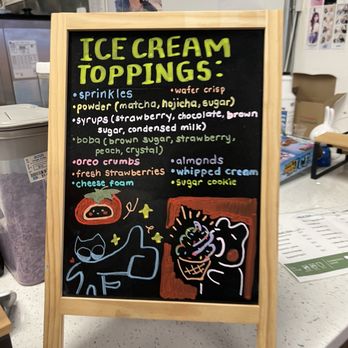 ICE CREAM
TOPPINGS:
• sprinkles • wafer crisp
• powder (matcha, hojicha, sugar)
• syrups (strawberry, chocolate, brown
sugar, condensed milk)
• boba (brown sugar, strawberry,
peach, crystal)
• oreo crumbs • almonds
• fresh strawberries • whipped cream
• cheese foam • sugar cookie